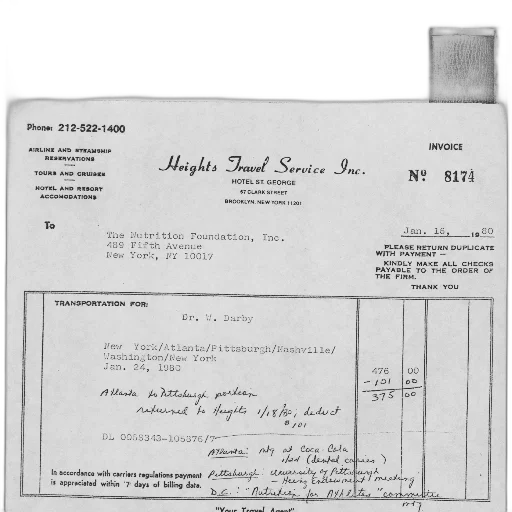 Phone: 212-522-1400
AIRLINE AND STEAMSHIP
RESERVATIONS
TOURS AND CRUISES
HOTEL AND RESORT
ACCOMODATIONS
Heights Travel Service Inc.
HOTEL ST. GEORGE
67 CLARK STREET
BROOKLYN, NEW YORK 11201
INVOICE
Nº 8174
To
The Nutrition Foundation, Inc.
489 Fifth Avenue
New York, NY 10017
Jan. 16, 1980
PLEASE RETURN DUPLICATE
WITH PAYMENT —
KINDLY MAKE ALL CHECKS
PAYABLE TO THE ORDER OF
THE FIRM.
THANK YOU
TRANSPORTATION FOR:
Dr. W. Darby
New York/Atlanta/Pittsburgh/Nashville/
Washington/New York
Jan. 24, 1980
476 00
- 101 00
375 00
Atlanta to Pittsburgh portion
returned to Heights 1/18/80; deduct
$101
Atlanta: mtg at Coca Cola
(dental caries)
In accordance with carriers regulations payment
is appreciated within 7 days of billing date.
Pittsburgh: University of Pittsburgh
- Heinz Endowment meeting
D.C.: "Nutrition for Athletes" committee
mtg
"Your Travel Agent"